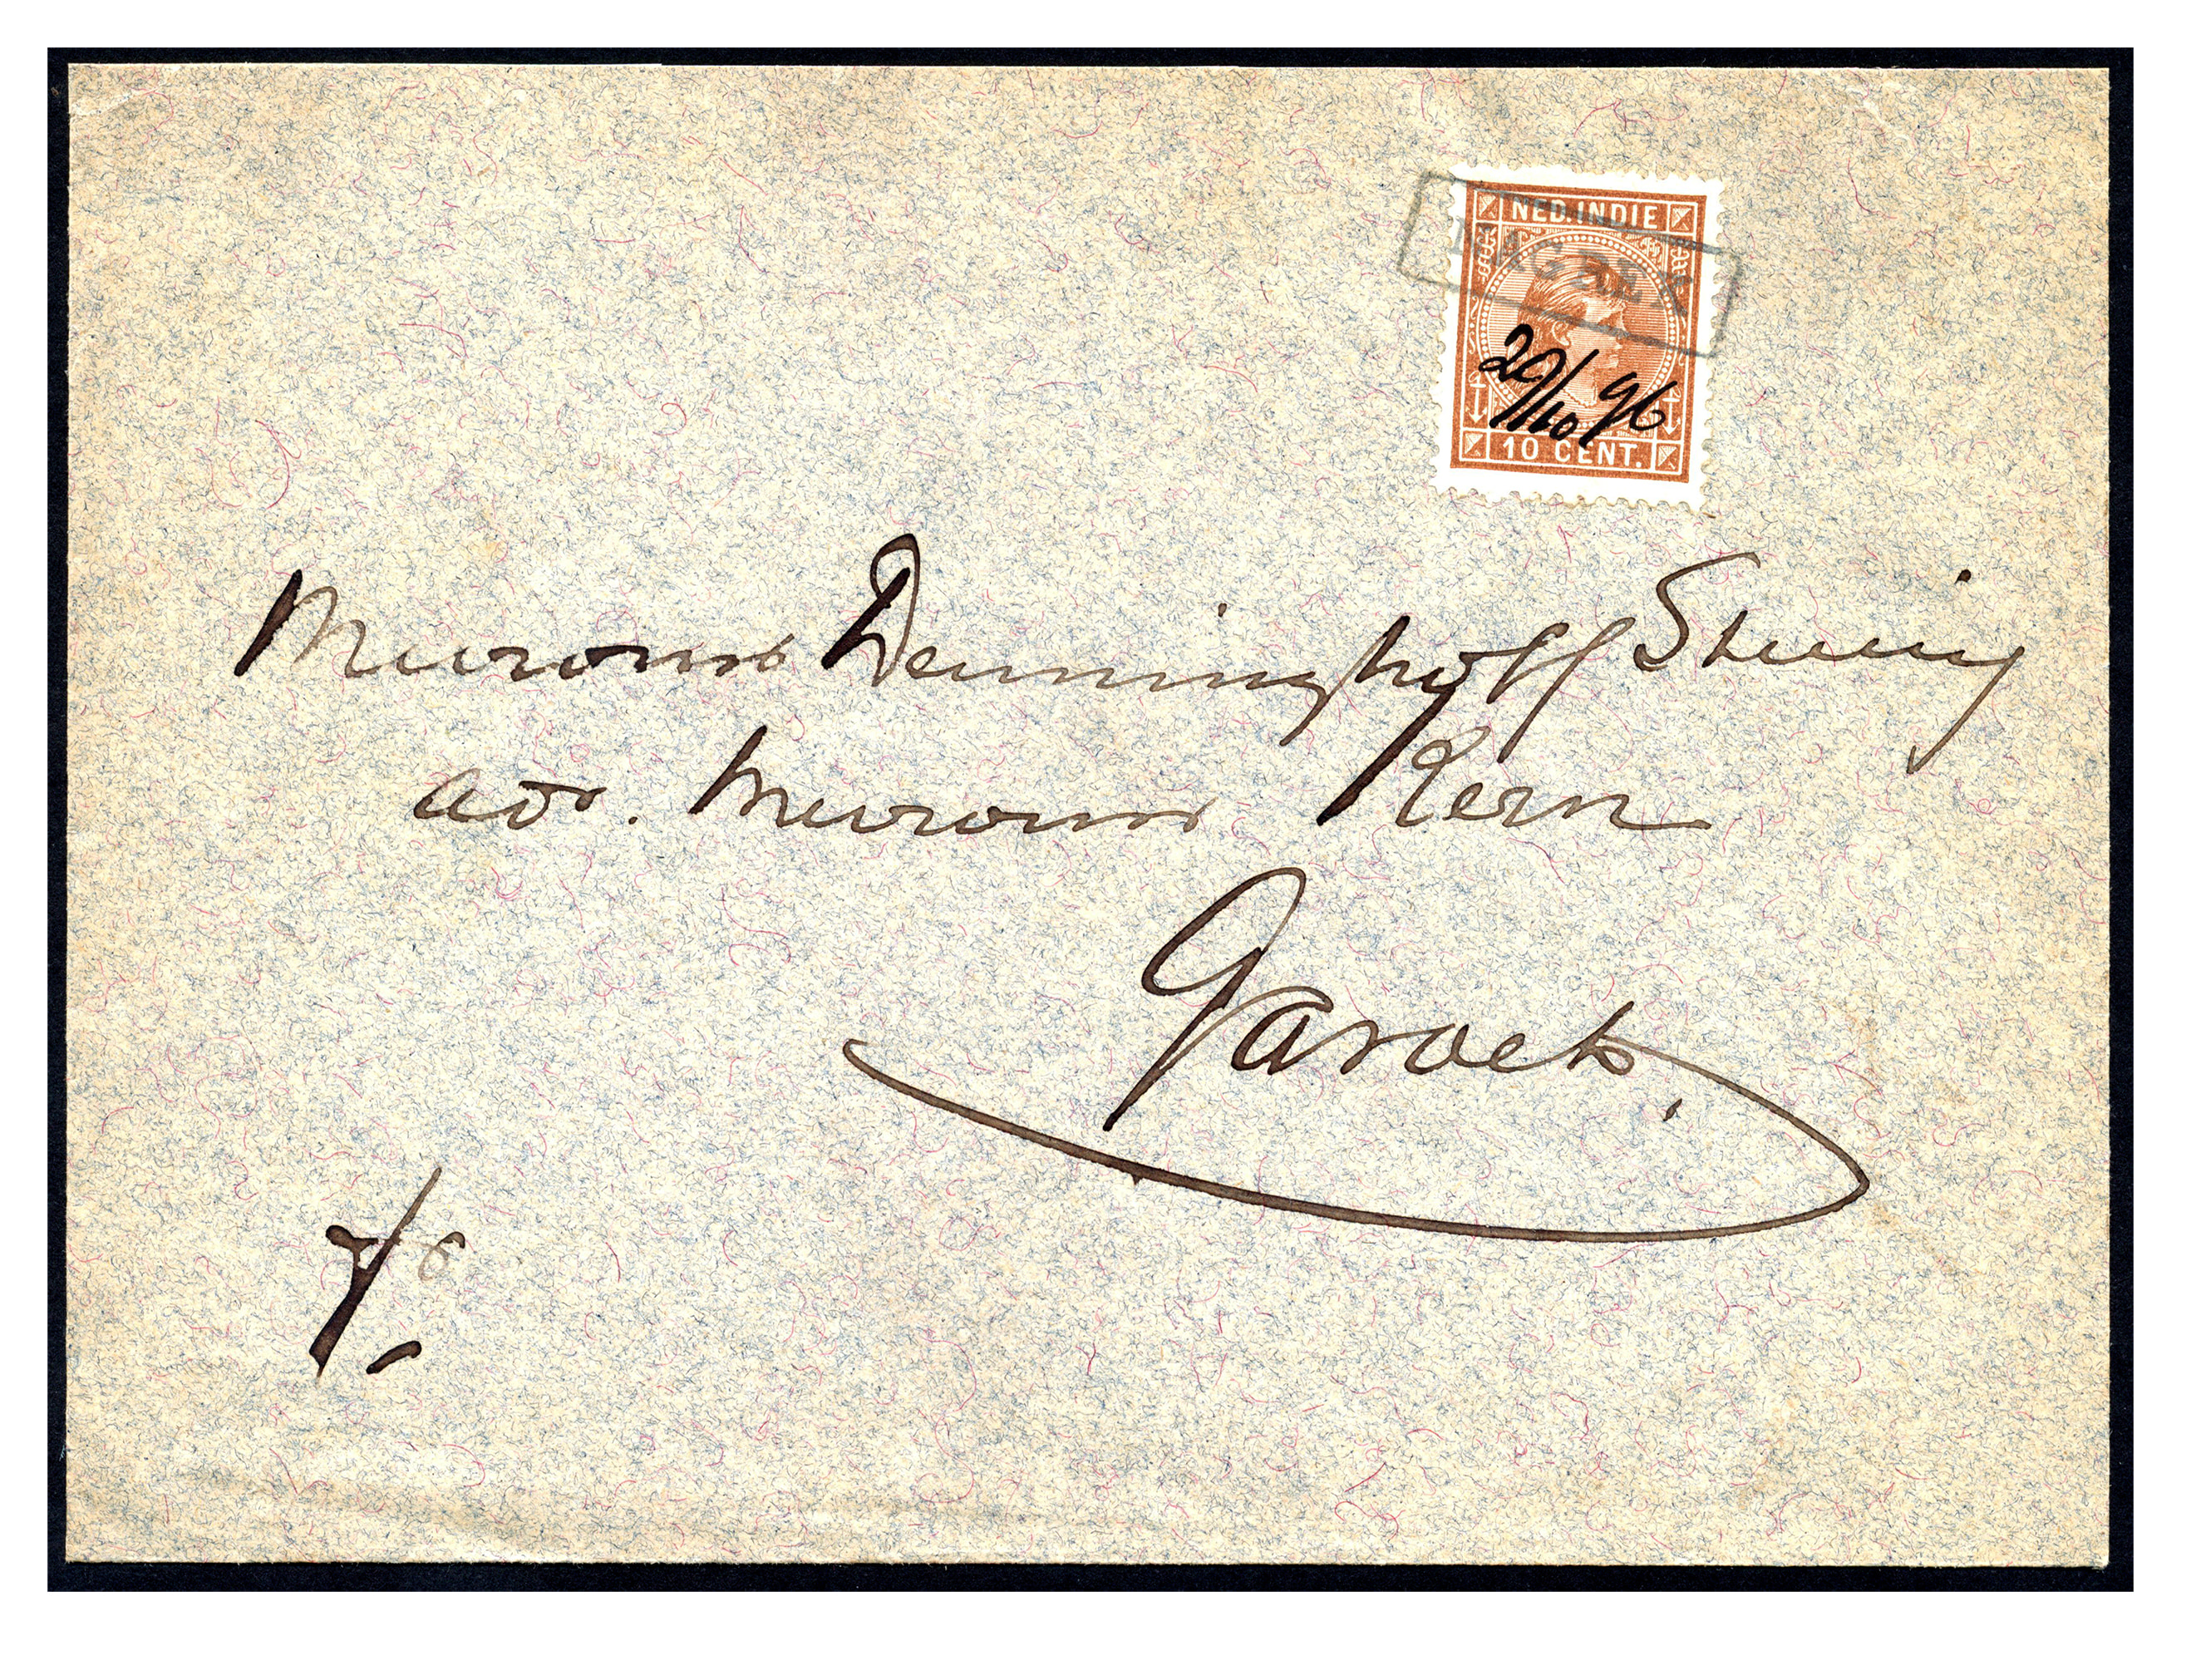 NED. INDIE
NAGREK
29/10 96
10 CENT.
Mevrouw Denninghoff Stelling
adr. Mevrouw Kern
Garoet.